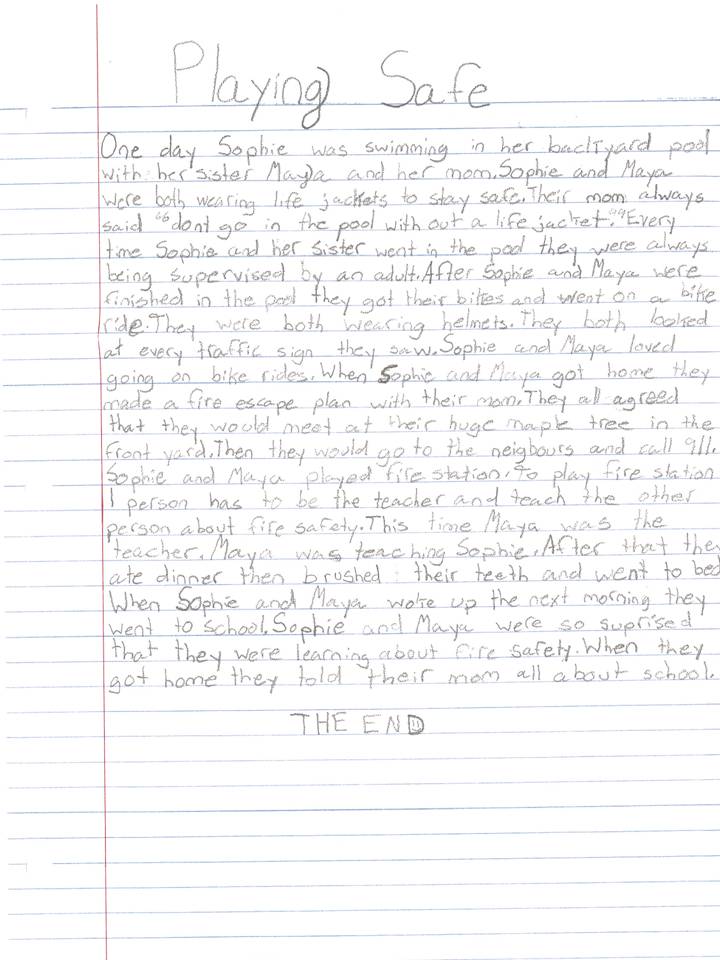 Playing Safe
One day Sophie was swimming in her backyard pool
with her sister Maya and her mom. Sophie and Maya
were both wearing life jackets to stay safe. Their mom always
said "dont go in the pool with out a life jacket." Every
time Sophie and her sister went in the pool they were always
being supervised by an adult. After Sophie and Maya were
finished in the pool they got their bikes and went on a bike
ride. They were both wearing helmets. They both looked
at every traffic sign they saw. Sophie and Maya loved
going on bike rides. When Sophie and Maya got home they
made a fire escape plan with their mom. They all agreed
that they would meet at their huge maple tree in the
front yard. Then they would go to the neighbours and call 911.
Sophie and Maya played fire station. To play fire station
1 person has to be the teacher and teach the other
person about fire safety. This time Maya was the
teacher. Maya was teaching Sophie. After that they
ate dinner then brushed their teeth and went to bed
When Sophie and Maya woke up the next morning they
went to school. Sophie and Maya were so suprised
that they were learning about fire safety. When they
got home they told their mom all about school.
THE END